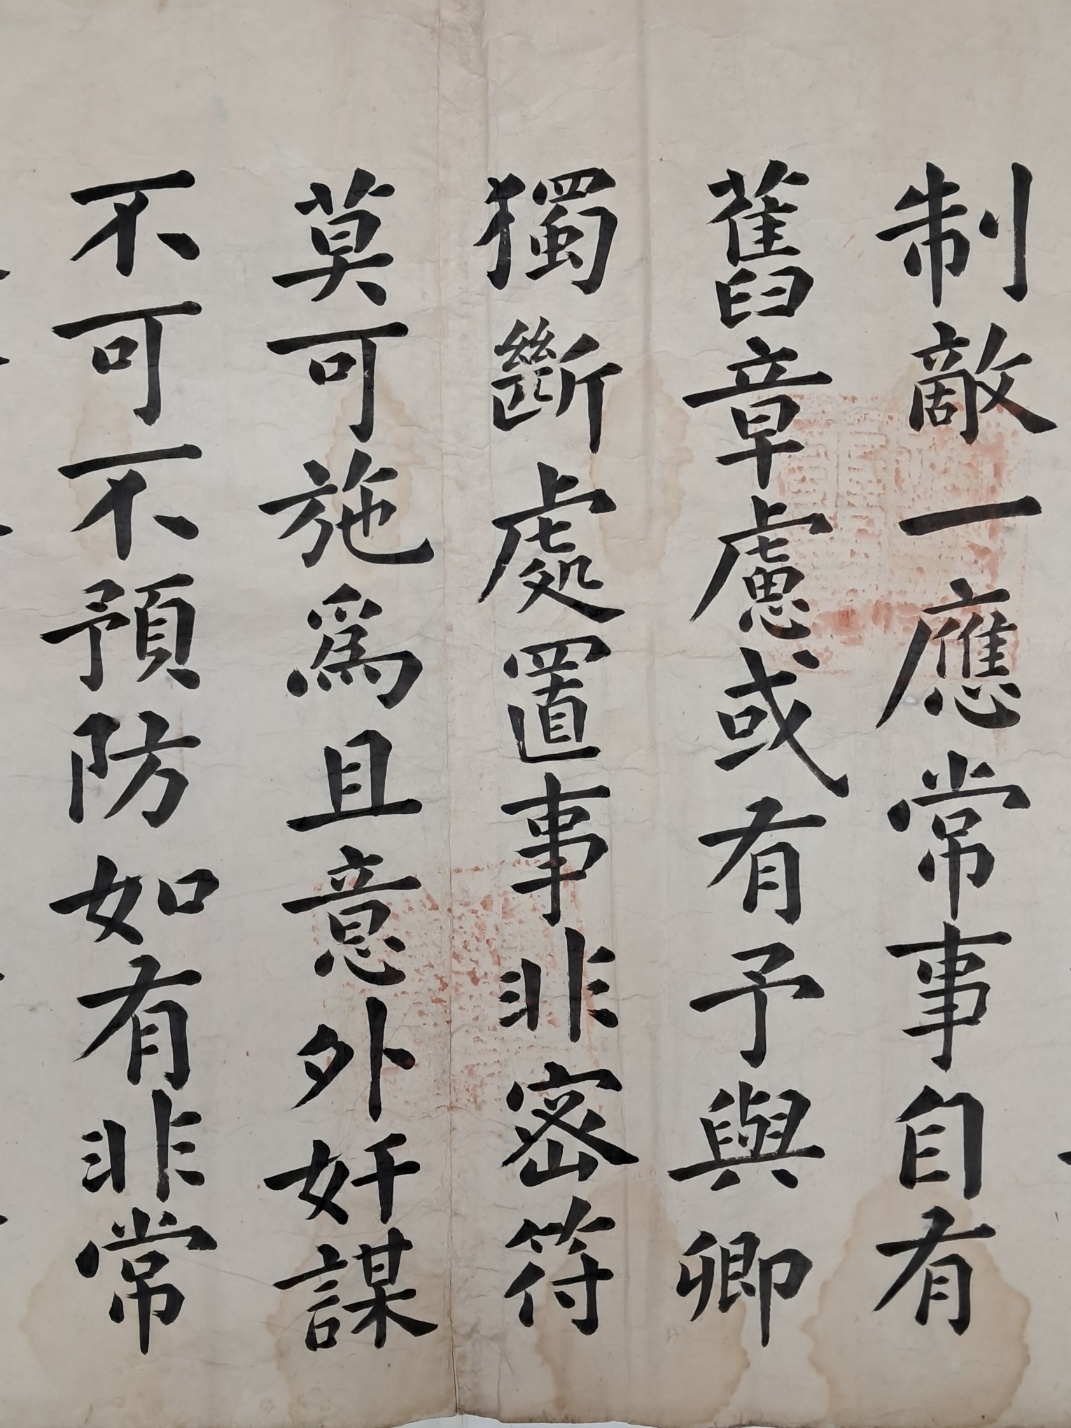 制敵一應常事自有
舊章慮或有予與卿
獨斷處置事非密符
莫可施爲且意外奸謀
不可不預防如有非常